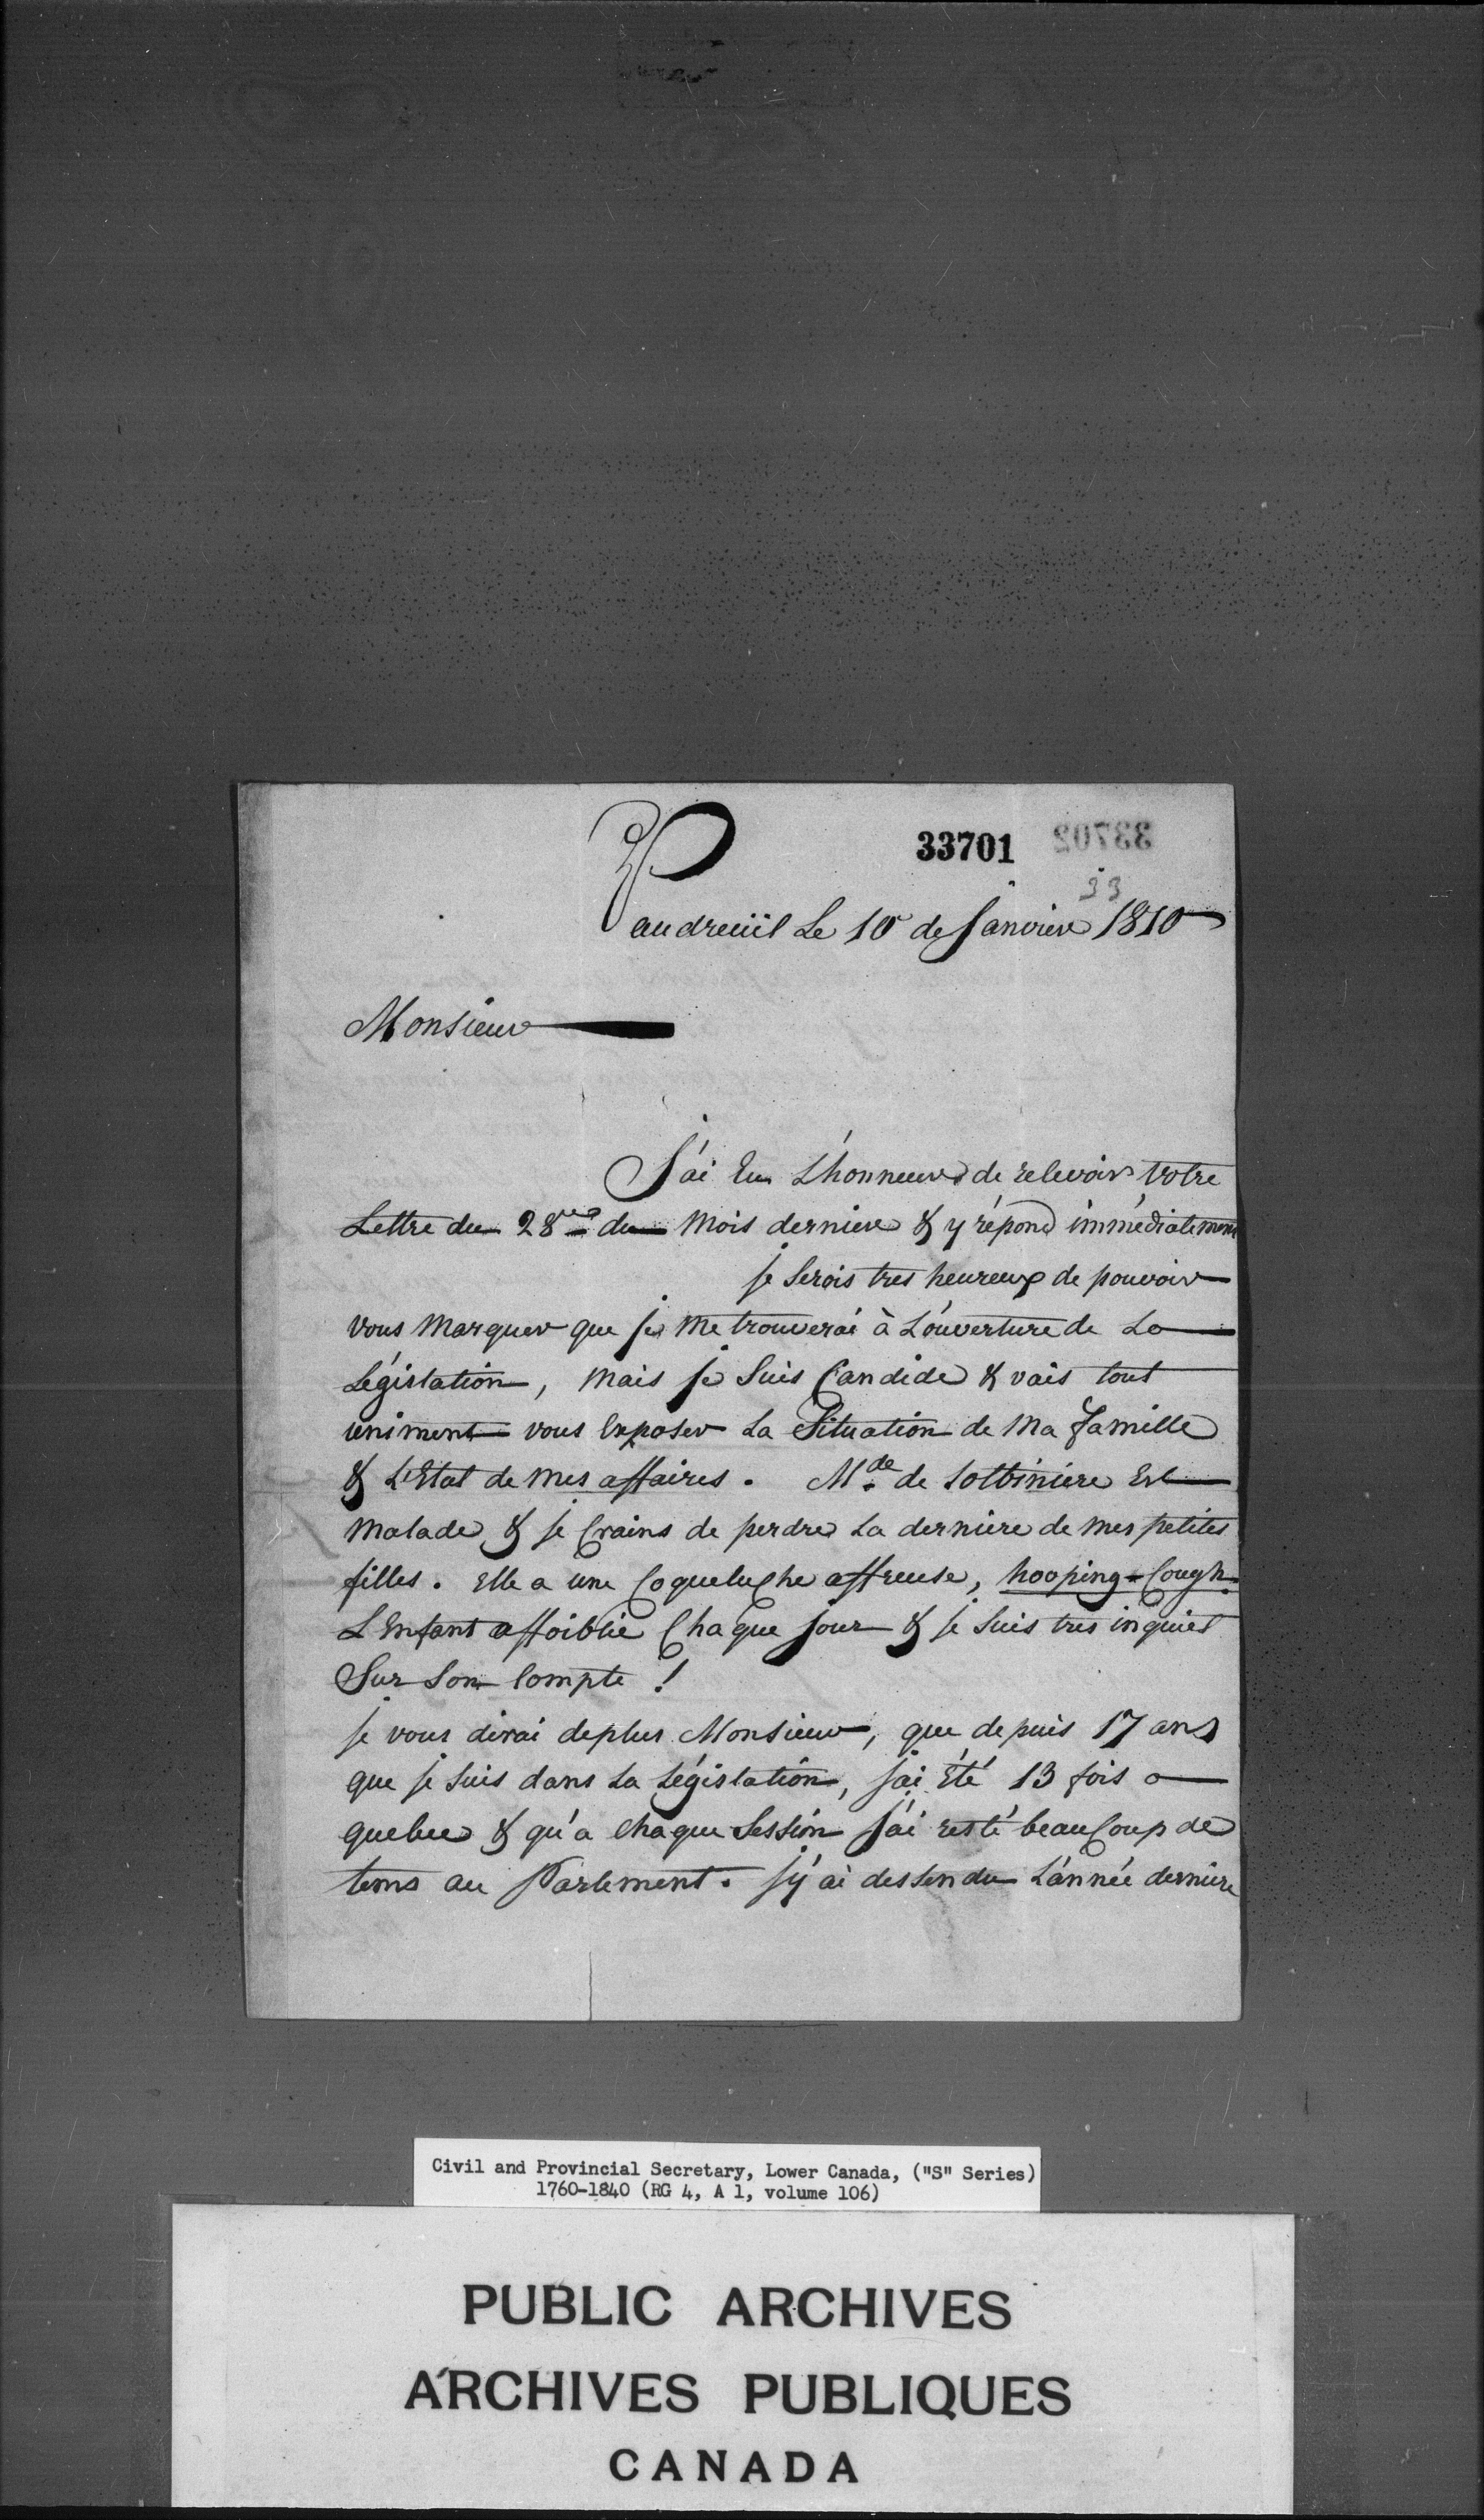 33701 33702
33
Vaudreüil Le 10 de Janvier 1810
Monsieur
J'ai Eu L'honneur de recevoir votre
Lettre du 28me du Mois dernier & y répond immédiatement
je Serois tres heureux de pouvoir
vous Marquer que je me trouverai à L'ouverture de La
Législation, Mais je Suis Candide & vais tout
uniment vous Exposer La Situation de Ma famille
& L'Etat de mes affaires. Mde de Lotbiniere Est
Malade & je Crains de perdre La derniere de mes petites
filles. Elle a une Coqueluche affreuse, hooping-Cough.
L'Enfant affoiblie Chaque jour & je Suis tres inquiet
Sur Son Compte !
je vous dirai deplus Monsieur, que depuis 17 ans
que je suis dans La Législation, j'ai Été 13 fois a
quebec & qu'a Chaque Session j'ai resté beauCoup de
tems au Parlement. j'y ai dessendu L'année derniere
Civil and Provincial Secretary, Lower Canada, ("S" Series)
1760-1840 (RG 4, A 1, volume 106)
PUBLIC ARCHIVES
ARCHIVES PUBLIQUES
CANADA